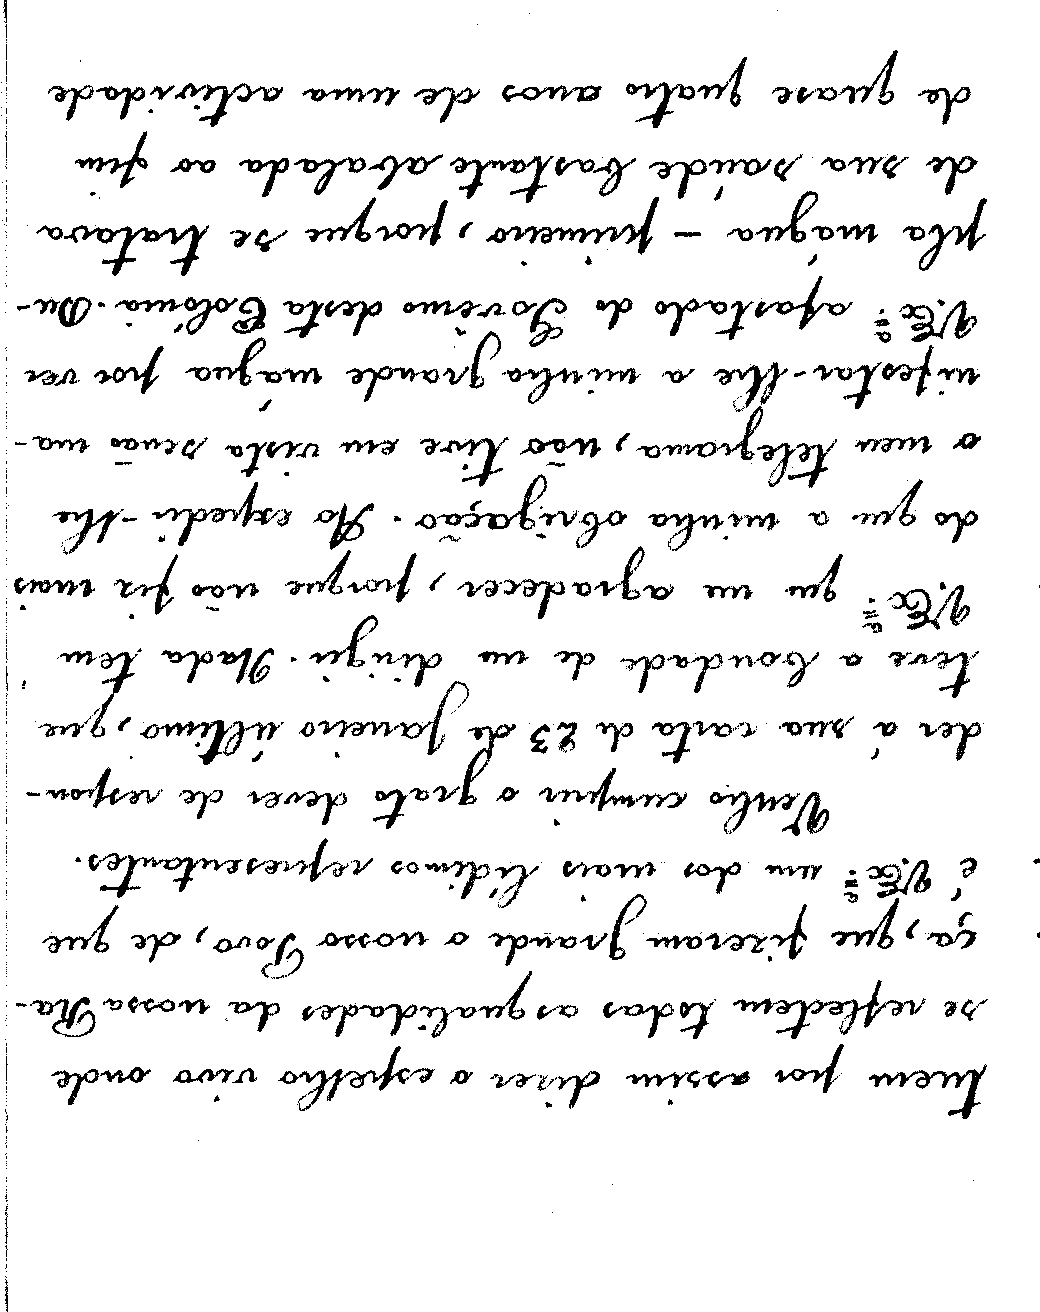 tuem por assim dizer o espelho vivo onde
se reflectem todas as qualidades da nossa Ra-
ça, que fizeram grande o nosso Povo, de que
é V. Ex.ª um dos mais lídimos representantes.
Venho cumprir o grato dever de respon-
der á sua carta de 23 de Janeiro último, que
teve a bondade de me dirigir. Nada tem
V. Ex.ª que me agradecer, porque não fiz mais
do que a minha obrigação. Ao expedir-lhe
o meu telegrama, não tive em vista senão ma-
nifestar-lhe a minha grande mágua por ver
V. Ex.ª afastado do Govêrno desta Colónia. Du-
pla mágua - primeiro, porque se tratava
de sua saúde bastante abalada ao fim
de quase quatro anos de uma actividade